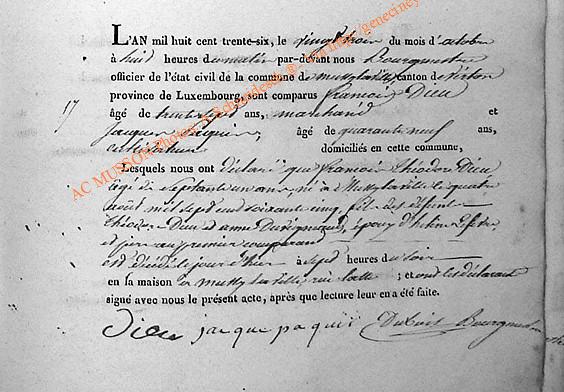 L'AN mil huit cent trente-six, le vingt trois du mois d'octobre
à huit heures du matin par-devant nous Bourgmestre
officier de l'état civil de la commune de mussy la ville canton de virton
province de Luxembourg, sont comparus françois Dieu
âgé de trente sept ans, marchand et
17
Jacques Paquin, âgé de quarante neuf ans,
cultivateur domiciliés en cette commune,
Lesquels nous ont déclaré que françois théodore Dieu
âgé de septante un ans, né à Mussy la ville le quatre
août mil sept cent soixante cinq, fils des défunts
théodore Dieu et anne époux d'hélène
et père au premier comparant
est décédé le jour d'hier à sept heures du soir
en la maison à mussy la ville, ; et ont les déclarants
signé avec nous le présent acte, après que lecture leur en a été faite.
Dieu jacque paquin Bourgmestre
AC MUSSON Photos